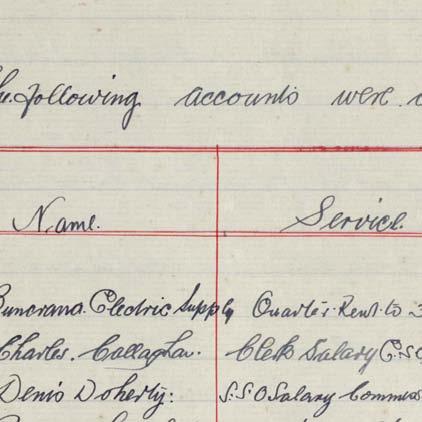 The following accounts were
Name. Service.
Buncrana Electric Supply Quarter's Rent to 3
Charles Callaghan. Clerk Salary
Denis Doherty. S.S.O Salary